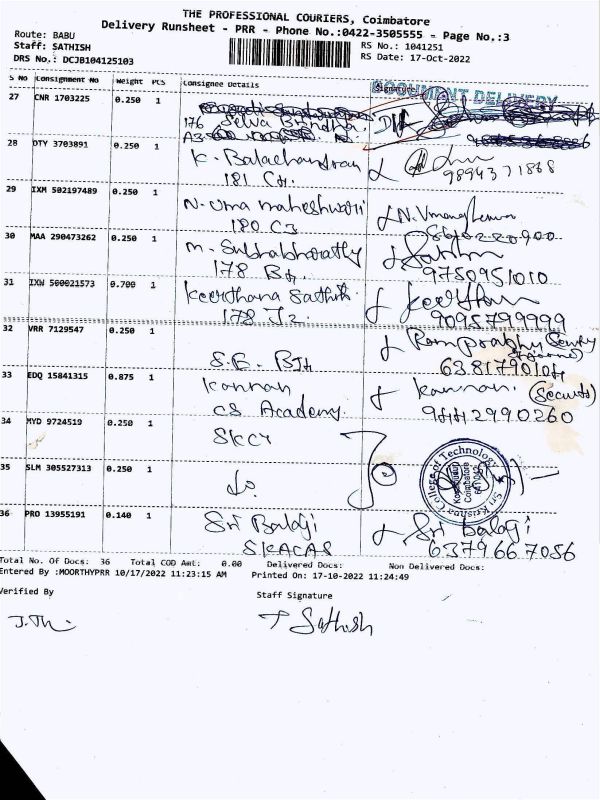 THE PROFESSIONAL COURIERS, Coimbatore
Delivery Runsheet - PRR - Phone No.:0422-3505555 - Page No.:3
Route: BABU
Staff: SATHISH
DRS No.: DCJB104125103
RS No.: 1041251
RS Date: 17-Oct-2022
S No Consignment No Weight PCS Consignee Details Signature
DOCUMENT DELIVERY
27 CNR 1703225 0.250 1
176 Selva Brindha
28 DTY 3703891 0.250 1 K. Balachandran
181 C4. 9894371868
29 IXM 502197489 0.250 1 N. Uma maheshwari
180 C3
30 MAA 290473262 0.250 1 M. Subhabharathy
178 B4 9750951010
31 IXW 500021573 0.700 1 Keerthana Sathish
178 J2 9095799999
32 VRR 7129547 0.250 1
6381790104
33 EDQ 15841315 0.875 1 Kannan Kannan (Security)
CS Academy. 9442990260
34 MYD 9724519 0.250 1 SKCT
35 SLM 305527313 0.250 1 do
Sri Krishna College of Technology
Kovaipudur
Coimbatore
641 042
36 PRO 13955191 0.140 1 Sri Balaji Sri balaji
SKACAS 6379667056
Total No. Of Docs: 36 Total COD Amt: 0.00 Delivered Docs: Non Delivered Docs:
Entered By :MOORTHYPRR 10/17/2022 11:23:15 AM Printed On: 17-10-2022 11:24:49
Verified By Staff Signature
T Sathish